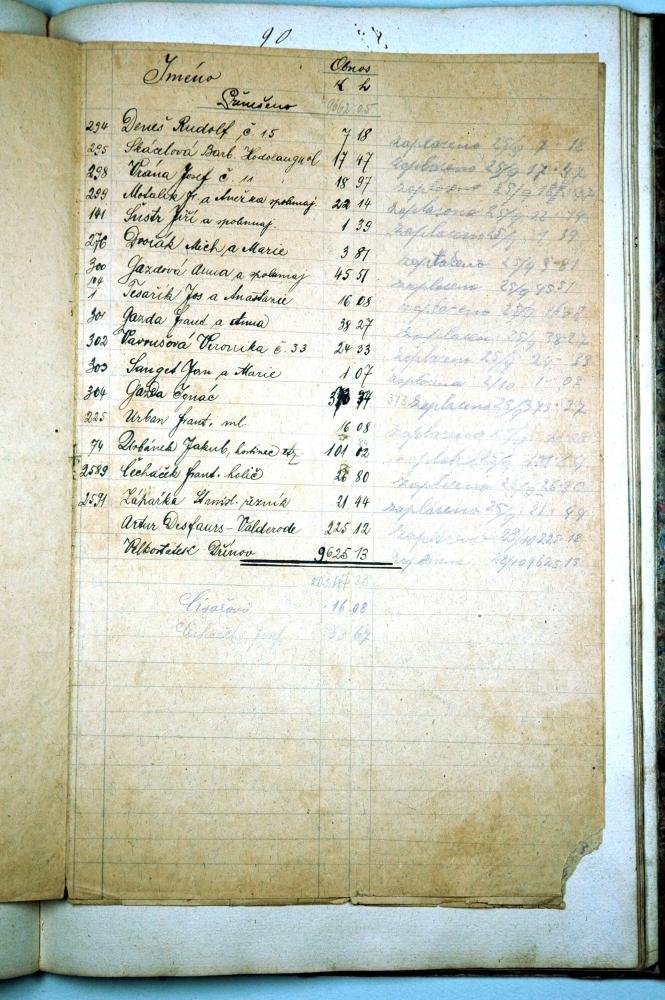 90
Jméno Obnos
K h
Přenešeno 9662 05
294 Deneš Rudolf č. 15 7 18 zaplaceno 25/9 7 18
295 Skácelová Barb. 17 47 zaplaceno 25/9 17 47
298 Vrána Josef č 11 18 97 zaplaceno 25/9
299 Motalík Fr. a Anežka spolumaj 22 14 zaplaceno 25/9 22 14
141 Šustr Jiří a spolumaj. 1 39 zaplaceno 25/9 1 39
276 Dvořák Mich. a Marie 3 81 zaplaceno 25/9 3 81
300 Gazdová Anna a spolumaj 45 51 zaplaceno 25/9 45 51
1 Tesařík Jos a Anastazie 16 08 zaplaceno 16 08
301 Gazda Frant a Anna 38 27 zaplaceno 25/9 38 27
302 Vavrušová Veronika č. 33 24 33 zaplaceno 25/9 24
303 Jan a Marie 1 07 zaplaceno 2/10 1 07
304 Gazda Ignác 373 37 zaplaceno 25/9 373 37
225 Urban Frant. ml 16 08 zaplaceno
74 Urbánek Jakub, hostinec 101 02
2589 Čecháček Frant. holič 26 80 zaplaceno 26 80
2591 Zákařka Stanisl. řezník 21 44 zaplaceno 25/9 21 44
Artur Desfours-Valderode 225 12 zaplaceno 28/10 225 12
Velkostatek Dřínov 9625 13 28/10 9625 13
Císařová 16 08
Josef 67